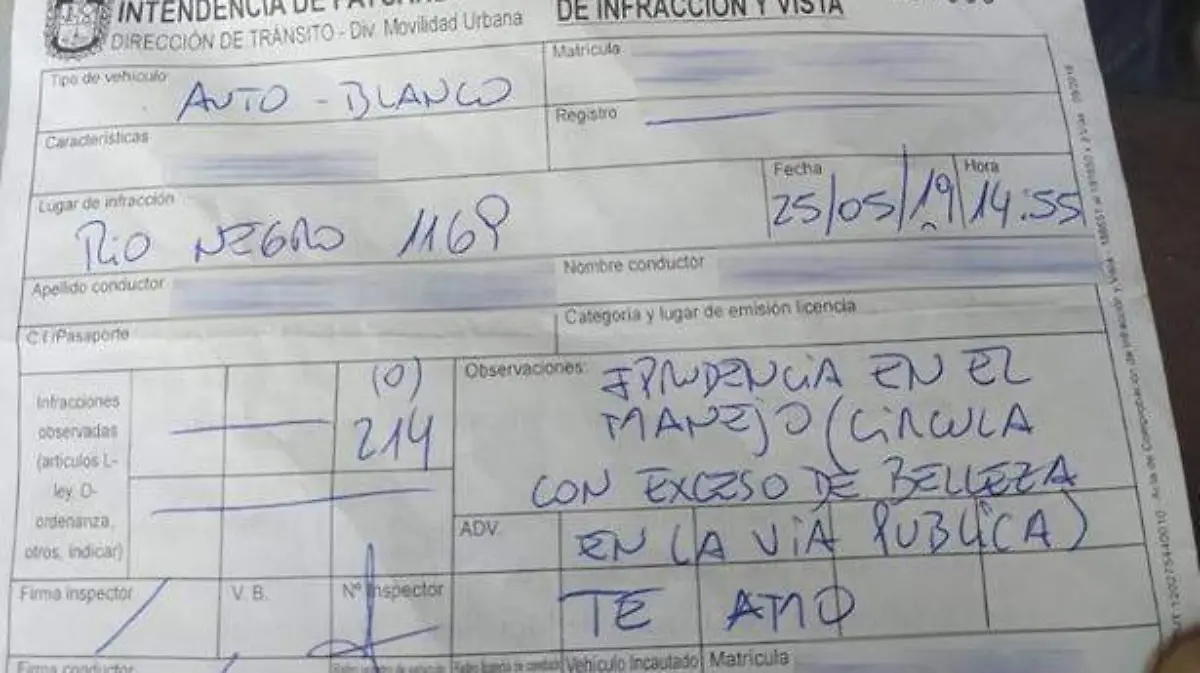 INTENDENCIA DE
DE INFRACCIÓN Y VISTA
DIRECCIÓN DE TRÁNSITO - Div. Movilidad Urbana
Tipo de vehículo
AUTO - BLANCO
Matrícula
Características
Registro
Lugar de infracción
RIO NEGRO 1169
Fecha
25/05/19
Hora
14:55
Apellido conductor
Nombre conductor
C.I/Pasaporte
Categoría y lugar de emisión licencia
Infracciones
observadas
(artículos L-
ley, O-
ordenanza,
otros, indicar)
(O)
214
Observaciones:
IPRUDENCIA EN EL
MANEJO (CIRCULA
CON EXCESO DE BELLEZA
EN LA VIA PUBLICA)
ADV.
TE AMO
Firma inspector
V. B.
Nº Inspector
Firma conductor
Vehículo Incautado
Matrícula